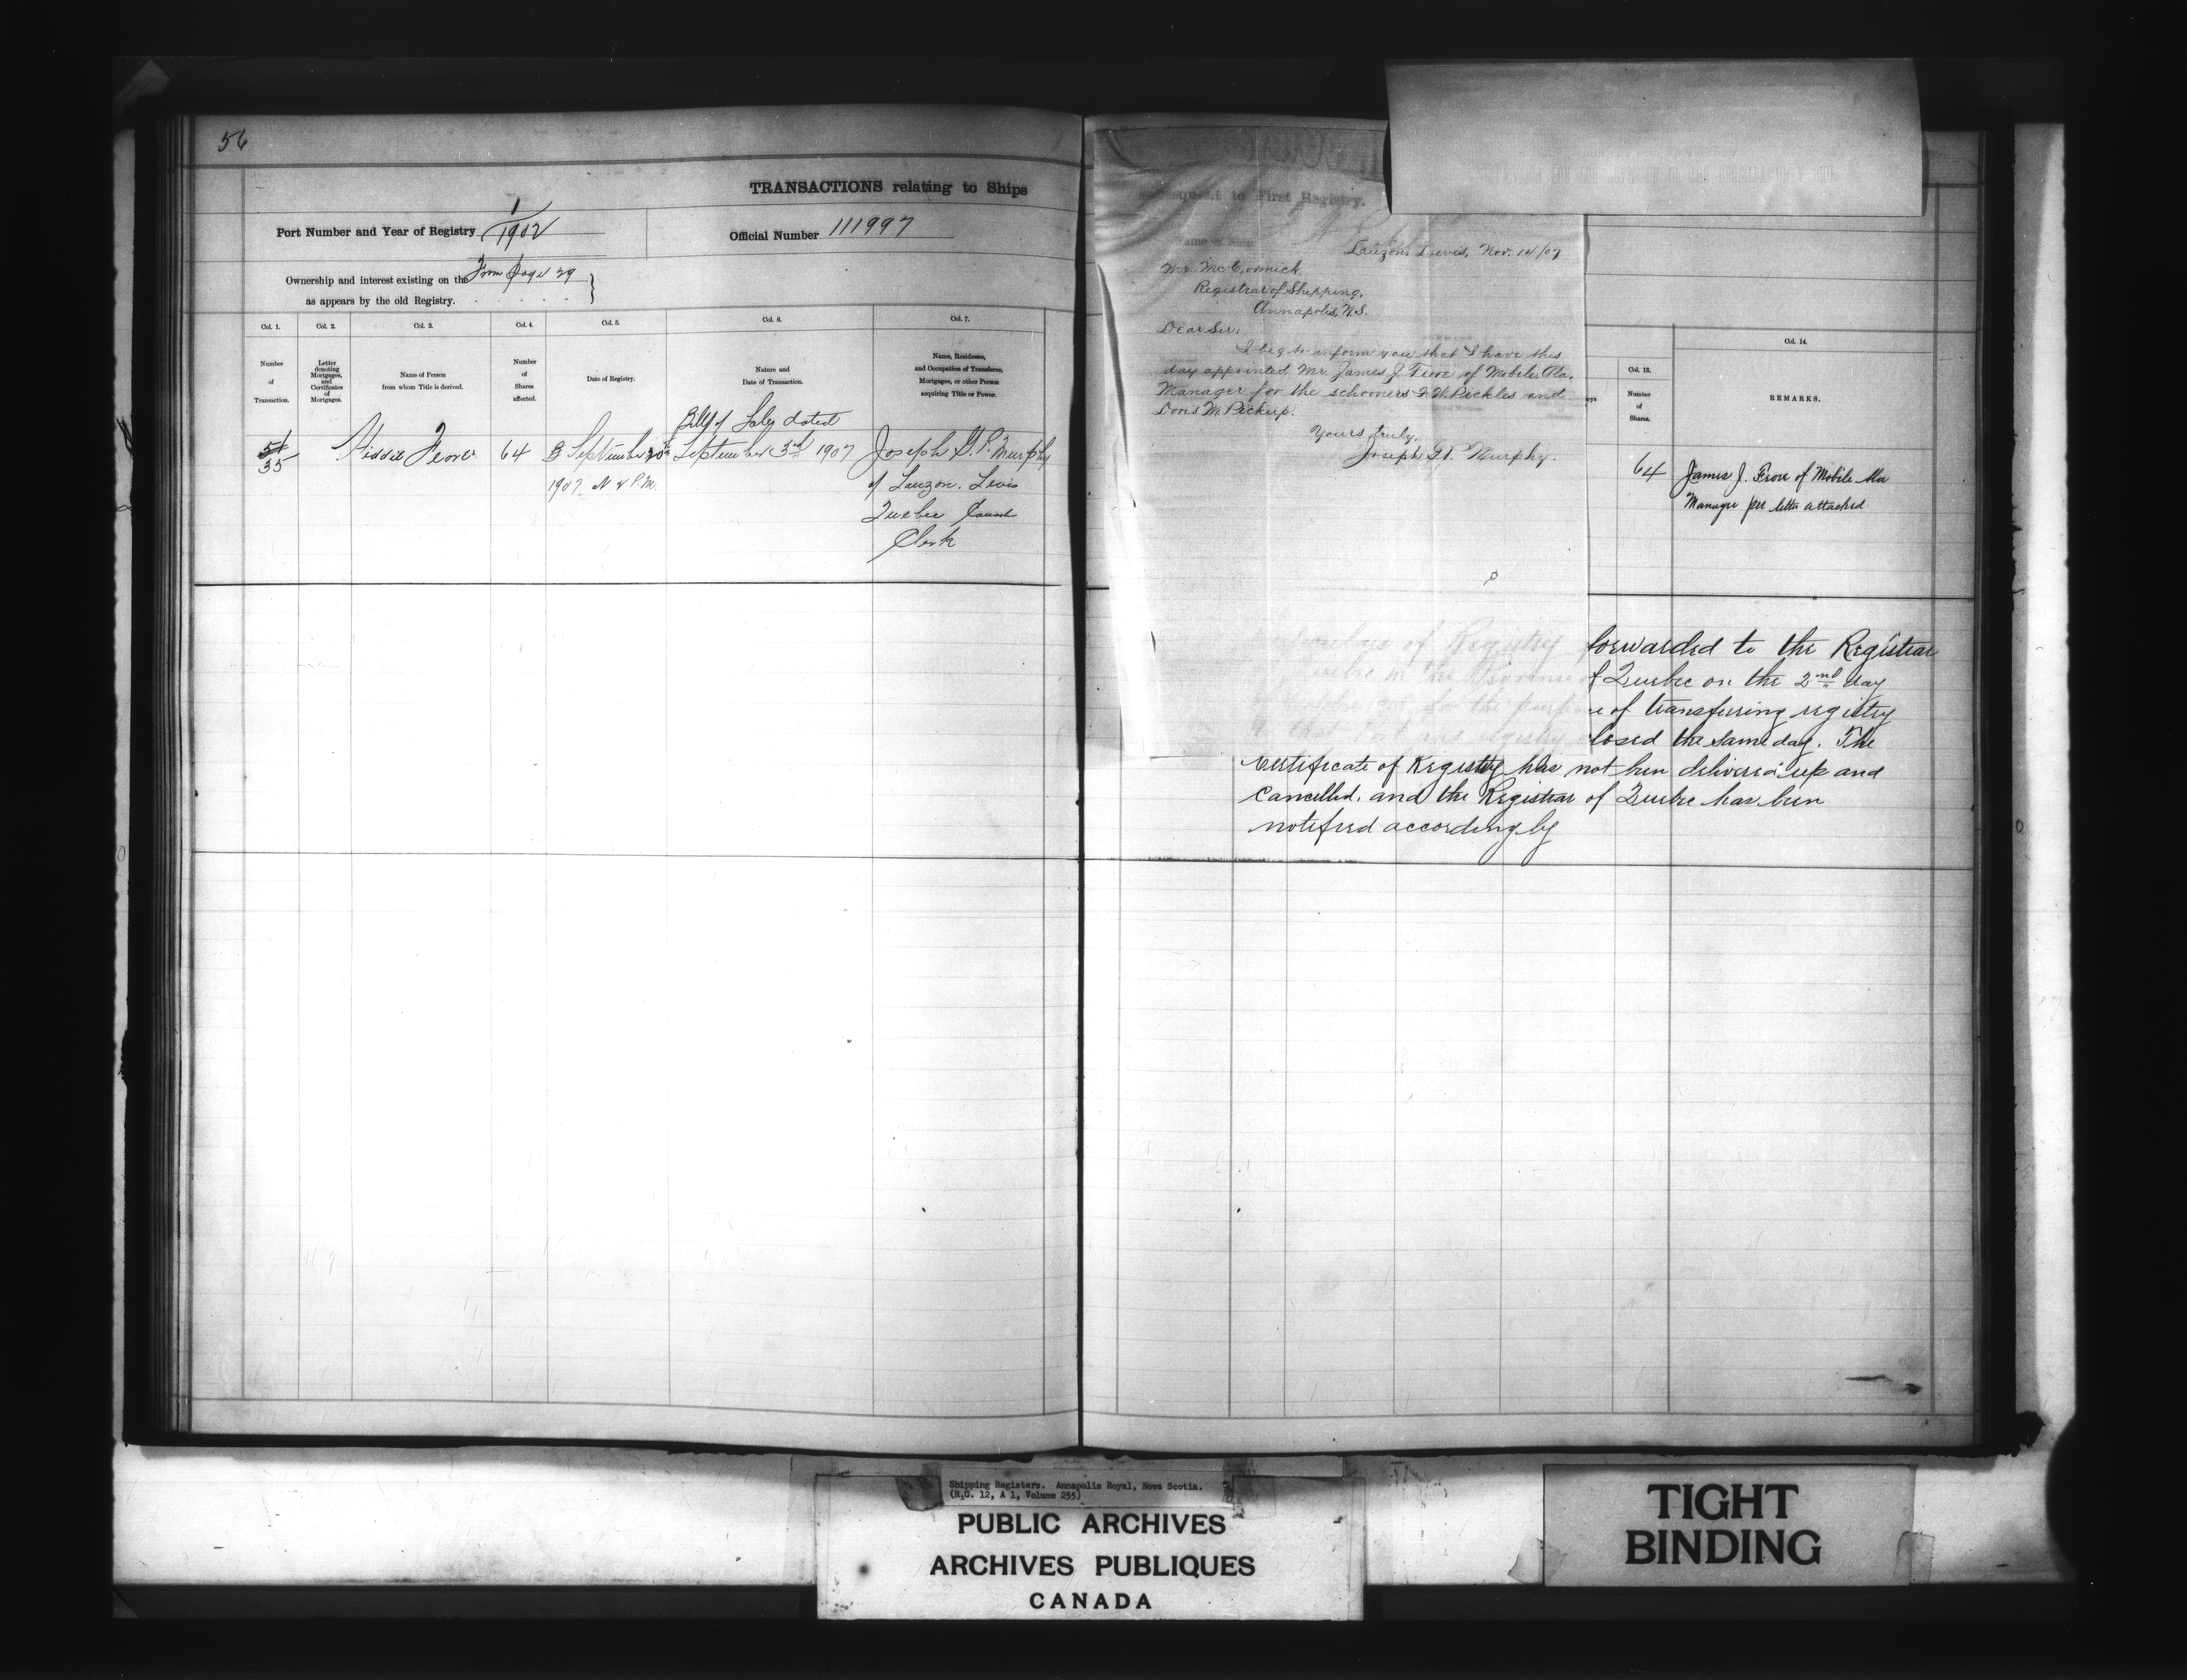 56
TRANSACTIONS relating to Ships
Port Number and Year of Registry 1/1902
Official Number 111997
Ownership and interest existing on the From page 29
as appears by the old Registry.
Col. 1.
Number
of
Transaction.
Col. 2.
Letter
denoting
Mortgages,
and
Certificates
of
Mortgages.
Col. 3.
Name of Person
from whom Title is derived.
Col. 4.
Number
of
Shares
affected.
Col. 5.
Date of Registry.
Col. 6.
Nature and
Date of Transaction.
Col. 7.
Name, Residence,
and Occupation of Transferee,
Mortgagee, or other Person
acquiring Title or Power.
35
Feore
64
September 20th
1907 P.M.
Bill of Sale dated
September 3rd 1907
Joseph G.P. Murphy
of Lauzon. Levis
Quebec Canada
Clerk
subsequent to First Registry.
Name of Ship
Lauzon, Levis, Nov. 14/07
Mr. McCormick.
Registrar of Shipping.
Annapolis, N.S.
Dear Sir:
I beg to inform you that I have this
day appointed Mr. James J. Feore of Mobile, Ala.
Manager for the schooners F. W. Pickles and
Doris M. Pickup.
Yours truly,
Joseph G.P. Murphy.
Col. 13.
Number
of
Shares.
Col. 14.
REMARKS.
64
James J. Feore of Mobile Ala
Manager per letter attached
of Registry forwarded to the Registrar
Quebec in the Province of Quebec on the 2nd day
for the purpose of transferring registry
to that Port and registry closed the same day. The
Certificate of Registry has not been delivered up and
cancelled, and the Registrar of Quebec has been
notified accordingly
Shipping Registers. Annapolis Royal, Nova Scotia.
(R.G. 12, A 1, Volume 255)
PUBLIC ARCHIVES
ARCHIVES PUBLIQUES
CANADA
TIGHT
BINDING